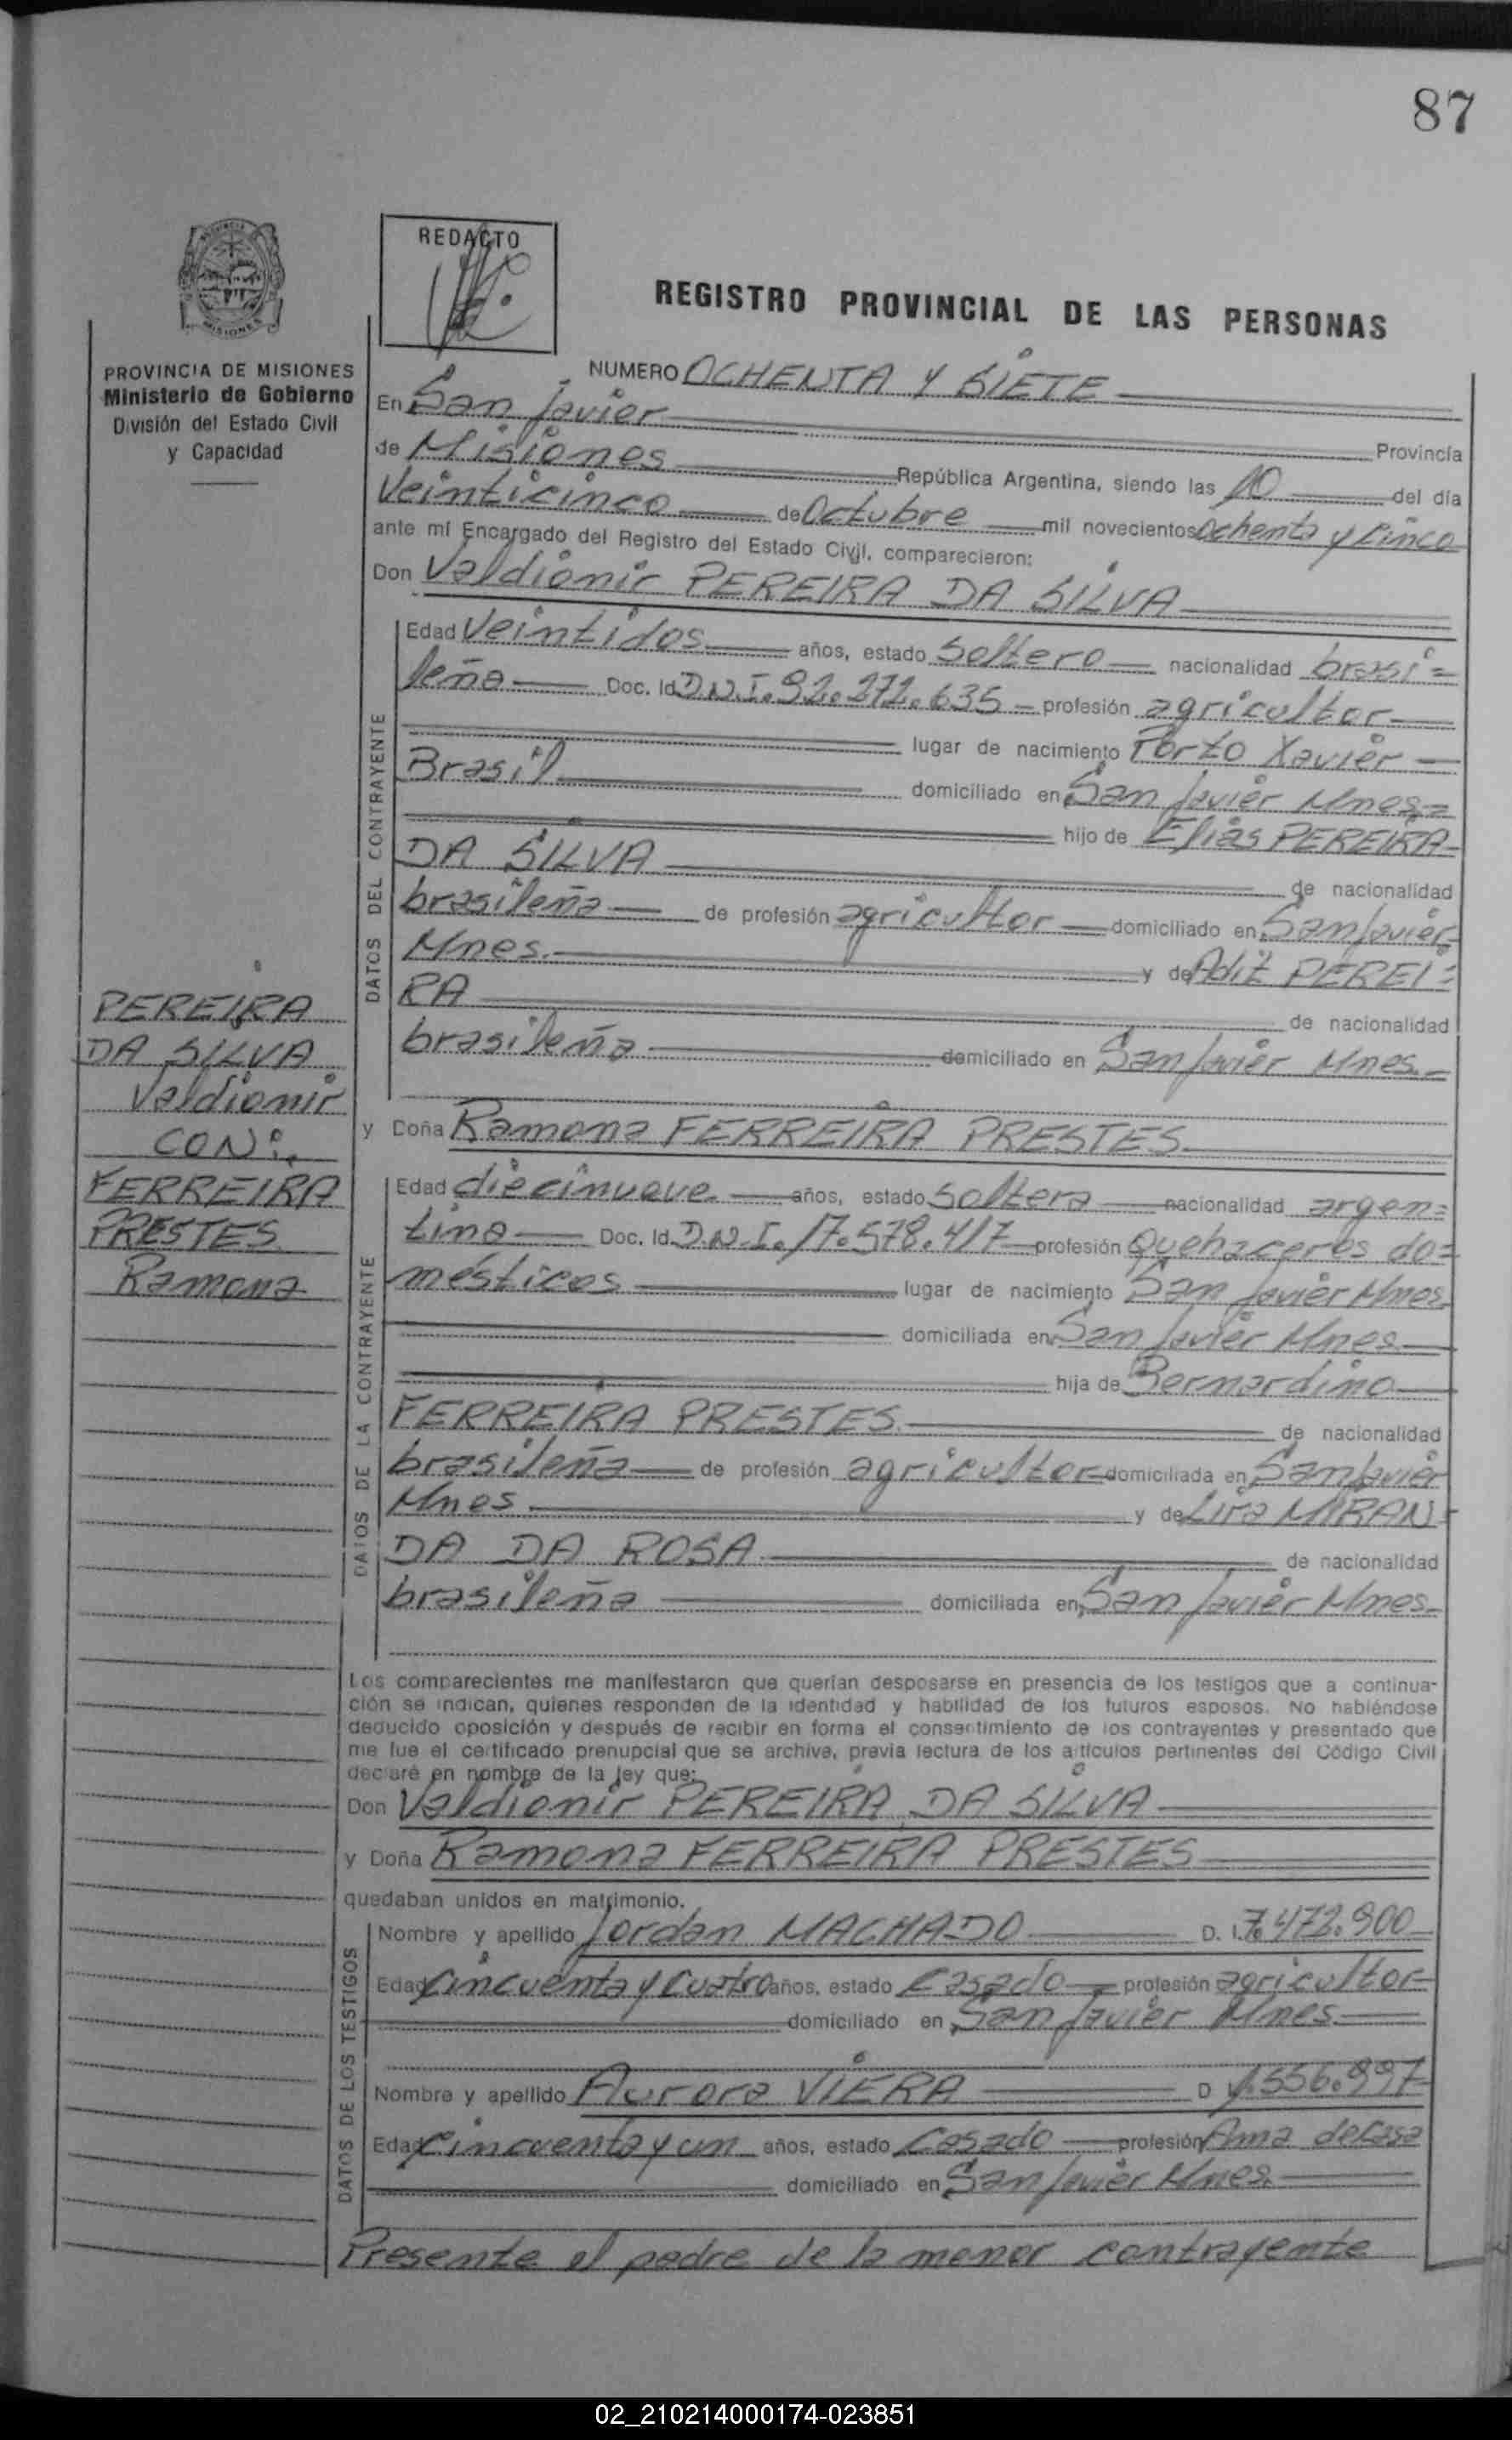 87
REDACTO
REGISTRO PROVINCIAL DE LAS PERSONAS
PROVINCIA DE MISIONES
Ministerio de Gobierno
División del Estado Civil
y Capacidad
NUMERO OCHENTA Y SIETE
En San Javier
Provincia
de Misiones República Argentina, siendo las 10 del día
Veinticinco de Octubre mil novecientos ochenta y cinco
ante mí Encargado del Registro del Estado Civil, comparecieron:
Don Valdionir PEREIRA DA SILVA
DATOS DEL CONTRAYENTE
Edad Veintidos años, estado Soltero nacionalidad brasi=
leña Doc. Id. D.N.I. 92.272.635 profesión agricultor
lugar de nacimiento Porto Xavier
Brasil domiciliado en San Javier Mnes
hijo de Elias PEREIRA
DA SILVA de nacionalidad
brasileña de profesión agricultor domiciliado en San Javier
Mnes. y de Adit PEREI=
RA de nacionalidad
brasileña domiciliado en San Javier Mnes.
PEREIRA
DA SILVA
Valdionir
CON:
FERREIRA
PRESTES
Ramona
y Doña Ramona FERREIRA PRESTES
DATOS DE LA CONTRAYENTE
Edad diecinueve años, estado Soltera nacionalidad argen=
tina Doc. Id. D.N.I. 17.578.417 profesión Quehaceres do=
mésticos lugar de nacimiento San Javier Mnes.
domiciliada en San Javier Mnes
hija de Bernardino
FERREIRA PRESTES de nacionalidad
brasileña de profesión agricultor domiciliada en San Javier
Mnes y de Lira MIRAN
DA DA ROSA de nacionalidad
brasileña domiciliada en San Javier Mnes.
Los comparecientes me manifestaron que querían desposarse en presencia de los testigos que a continua-
ción se indican, quienes responden de la identidad y habilidad de los futuros esposos. No habiéndose
deducido oposición y después de recibir en forma el consentimiento de los contrayentes y presentado que
me fue el certificado prenupcial que se archiva, previa lectura de los artículos pertinentes del Código Civil
declaré en nombre de la ley que:
Don Valdionir PEREIRA DA SILVA
y Doña Ramona FERREIRA PRESTES
quedaban unidos en matrimonio.
DATOS DE LOS TESTIGOS
Nombre y apellido Jordan MACHADO D. I. 7.472.900
Edad Cincuenta y cuatro años, estado Casado profesión agricultor
domiciliado en San Javier Mnes
Nombre y apellido Aurora VIERA D 1.556.997
Edad Cincuenta y un años, estado Casado profesión Ama de casa
domiciliado en San Javier Mnes.
Presente el padre de la menor contrayente
02_210214000174-023851